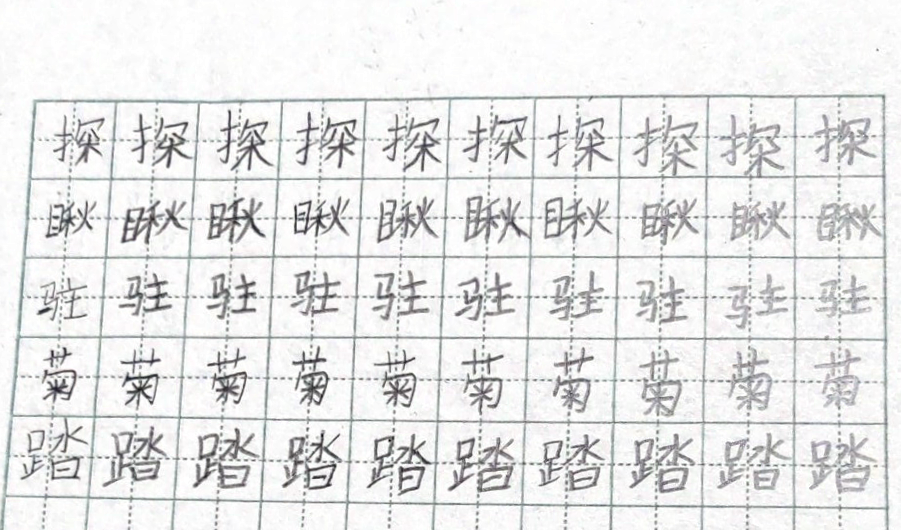 探探探探探探探探探探
瞅瞅瞅瞅瞅瞅瞅瞅瞅瞅
驻驻驻驻驻驻驻驻驻驻
菊菊菊菊菊菊菊菊菊菊
踏踏踏踏踏踏踏踏踏踏